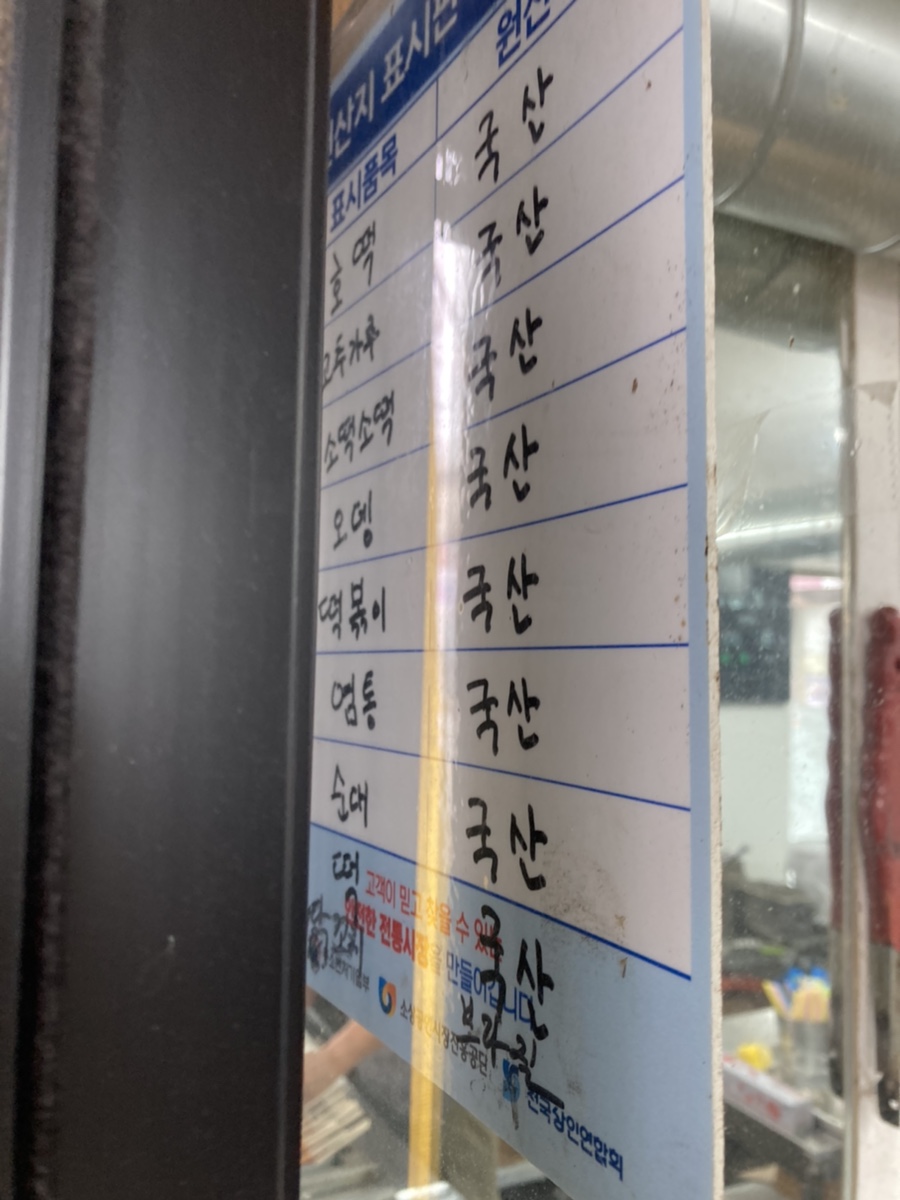 산지 표시판 원산
표시품목 국산
호떡 국산
고추가루 국산
소떡소떡 국산
오뎅 국산
떡볶이 국산
염통 국산
순대 국산
떡
고객이 믿고 찾을 수 있는
한 전통시장을 만들어갑니다
브라질
소상공인시장진흥공단
전국상인연합회